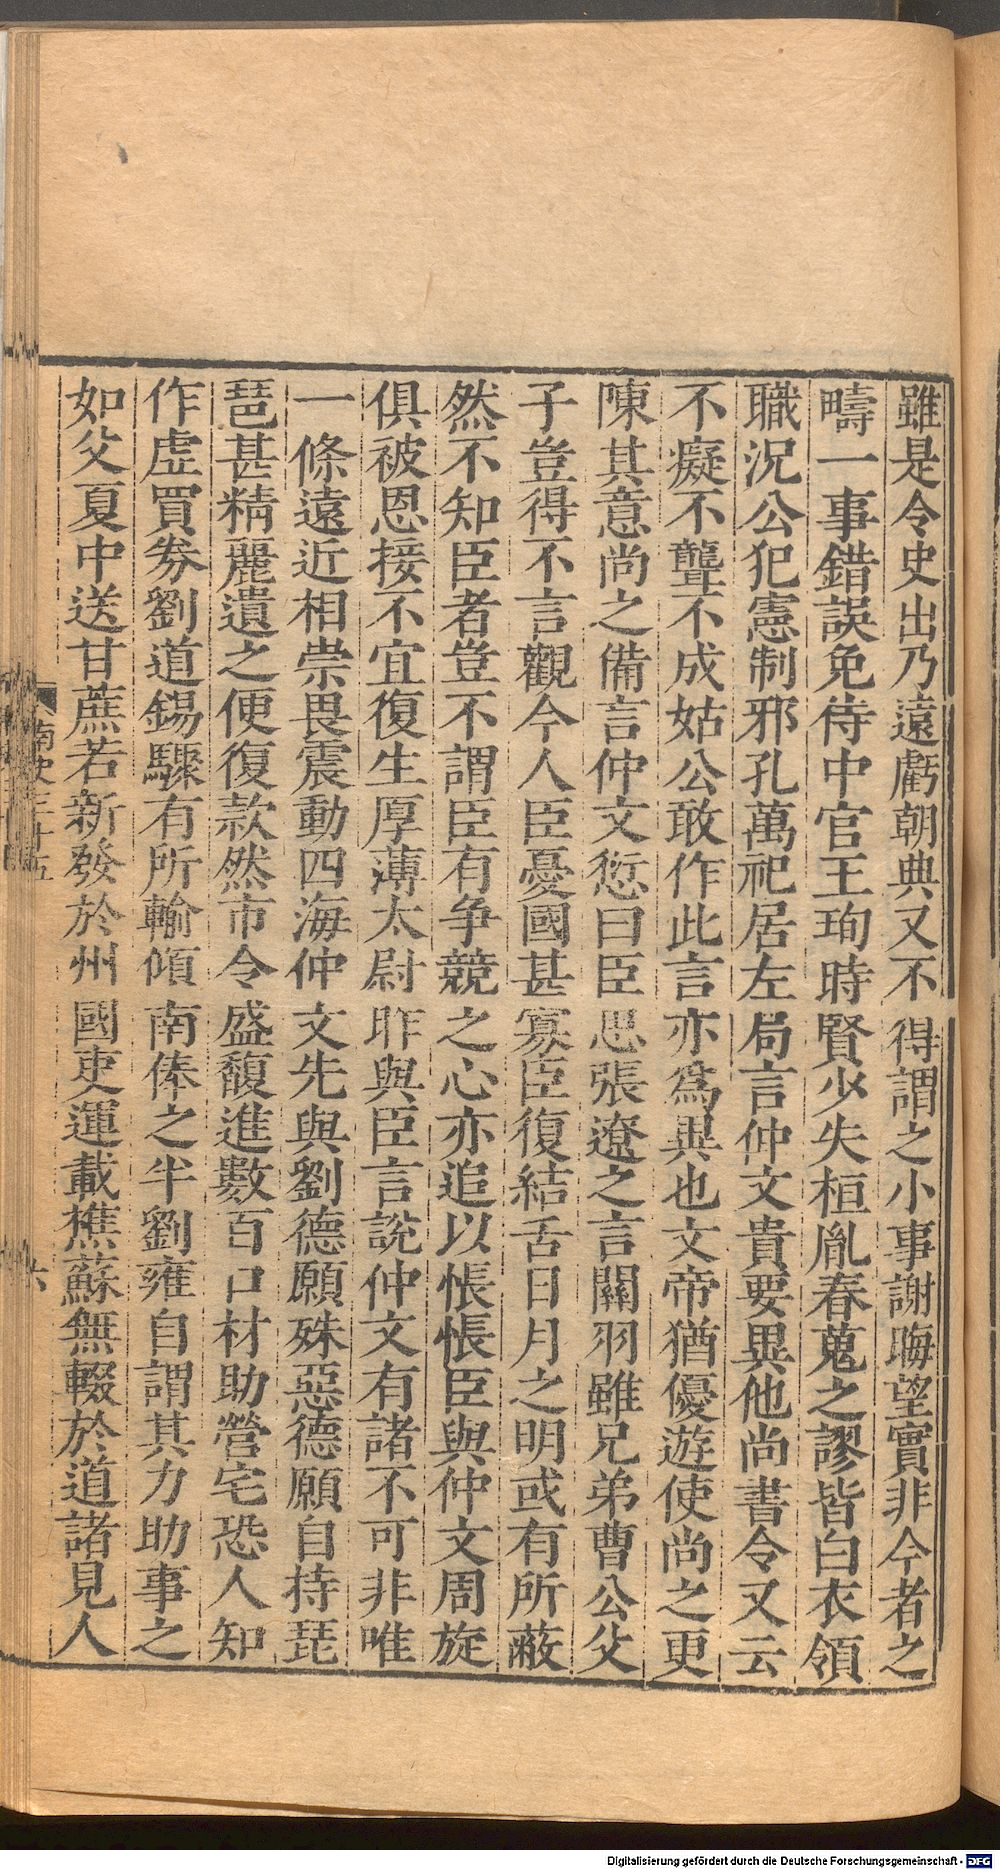 雖是令史出乃遠虧朝典又不得謂之小事謝晦望實非今者之
疇一事錯誤免侍中官王珣時賢少失桓胤春蒐之謬皆白衣領
職況公犯憲制邪孔萬祀居左局言仲文貴要異他尚書令又云
不癡不聾不成姑公敢作此言亦為異也文帝猶優遊使尚之更
陳其意尚之備言仲文愆曰臣思張遼之言關羽雖兄弟曹公父
子豈得不言觀今人臣憂國甚寡臣復結舌日月之明或有所蔽
然不知臣者豈不謂臣有爭競之心亦追以悵悵臣與仲文周旋
俱被恩接不宜復生厚薄太尉昨與臣言說仲文有諸不可非唯
一條遠近相崇畏震動四海仲文先與劉德願殊惡德願自持琵
琶甚精麗遺之便復款然市令盛馥進數百口材助營宅恐人知
作虛買券劉道錫驟有所輸傾南俸之半劉雍自謂其力助事之
如父夏中送甘蔗若新發於州國吏運載樵蘇無輟於道諸見人
南史三十五
六
Digitalisierung gefördert durch die Deutsche Forschungsgemeinschaft - DFG